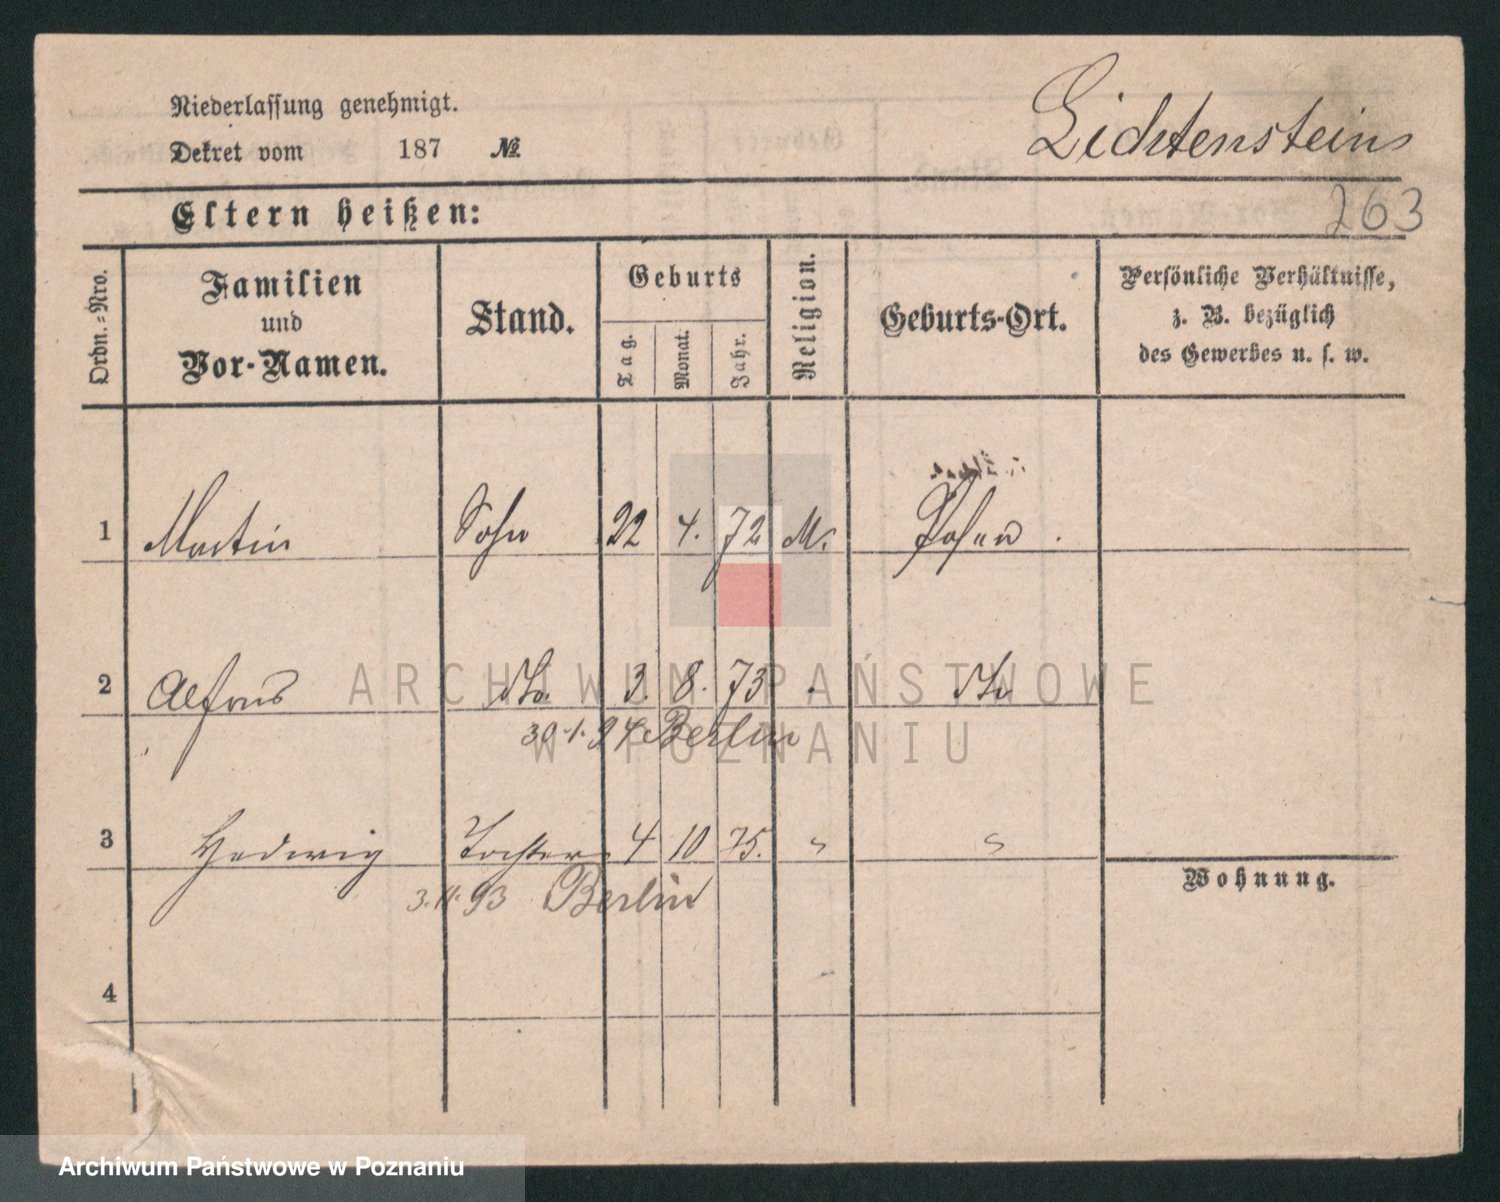 Niederlassung genehmigt.
Lichtenstein
Dekret vom 187 №
263
Eltern heißen:
Ordn.-Nro.
Familien
und
Vor-Namen.
Stand.
Geburts
Tag.
Monat.
Jahr.
Religion.
Geburts-Ort.
Persönliche Verhältnisse,
z. B. bezüglich
des Gewerbes u. s. w.
1 Martin Sohn 22 4. 72 M. Posen
2 Alfons dto. 3. 8. 73 dto
30.1.94 Berlin
3 Hedwig Tochter 4 10 75. " "
3.11.93 Berlin
Wohnung.
4
ARCHIWUM PAŃSTWOWE
W POZNANIU
Archiwum Państwowe w Poznaniu